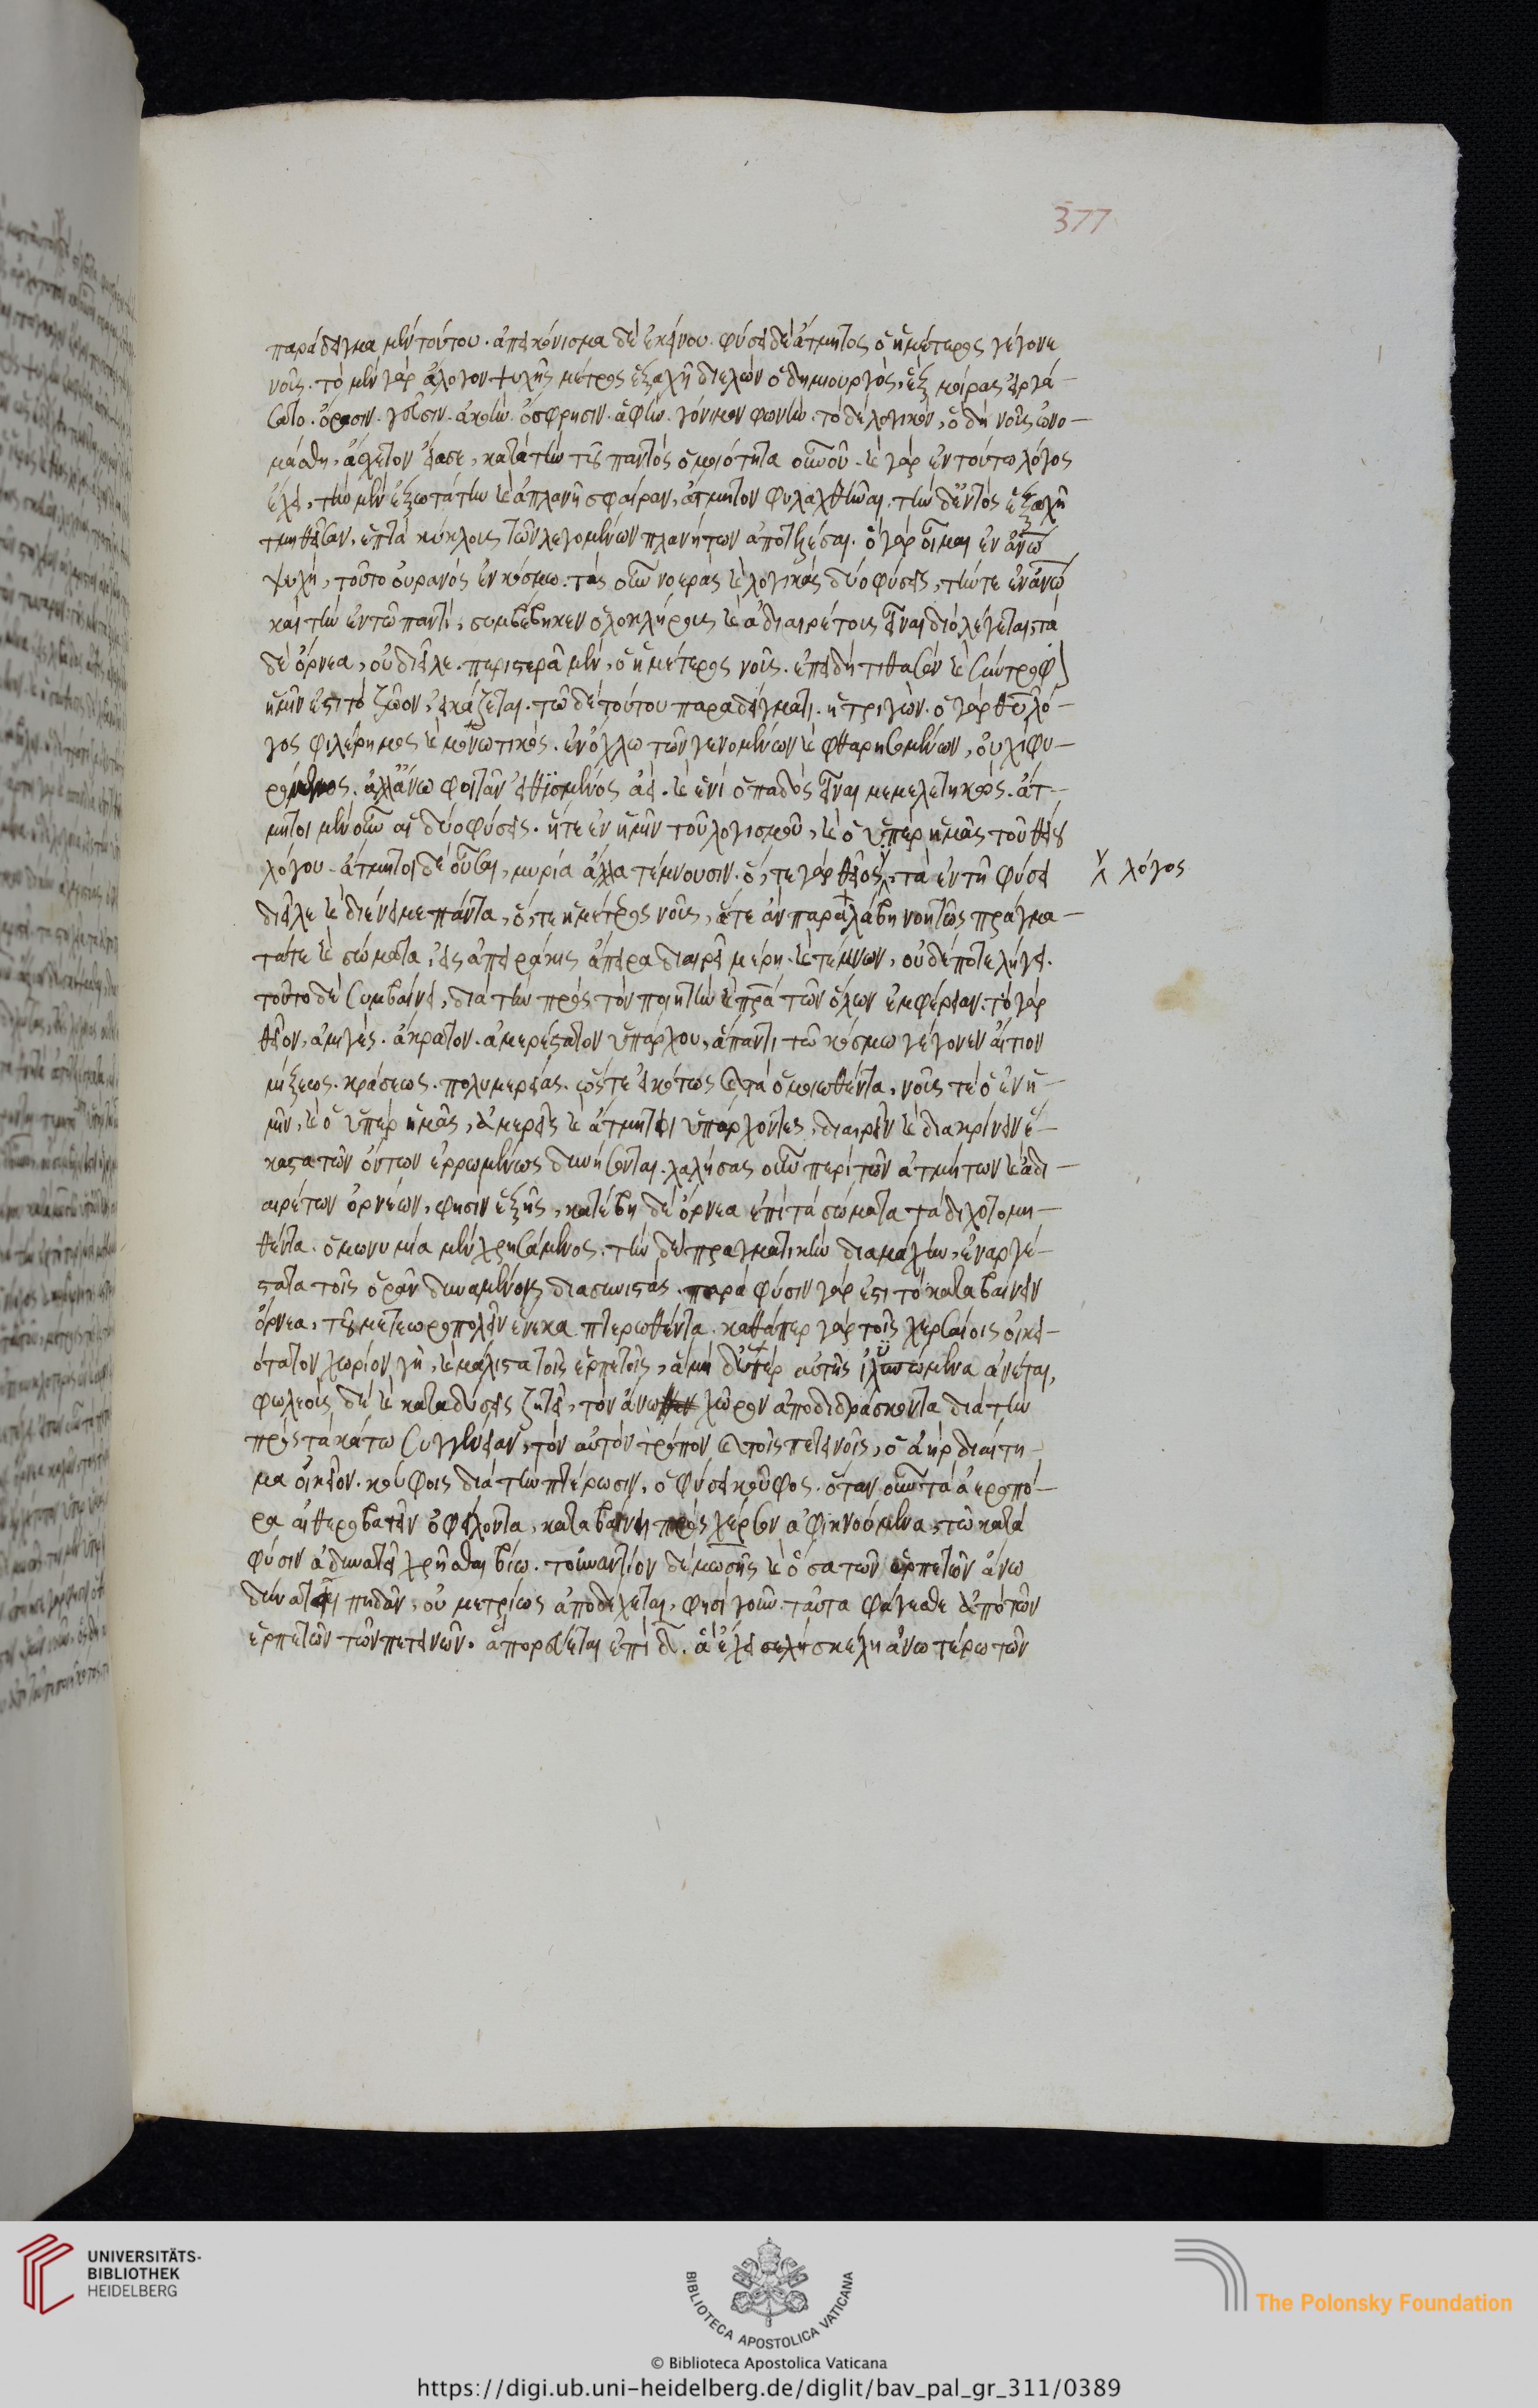 παράδειγμα μὲν τούτου. ἀπεικόνισμα δὲ ἐκείνου. φύσει δὲ ἄτμητος ὁ ἡμέτερος γέγονε
νοῦς. τὸ μὲν γὰρ ἄλογον ψυχῆς μέρος ἑξαχῆ διελὼν ὁ δημιουργὸς, ἓξ μοίρας εἰργά-
σατο. ὅρασιν. γεῦσιν. ἀκοὴν. ὄσφρησιν. ἁφὴν. γόνιμον φωνὴν. τὸ δὲ λογικὸν, ὃ δὴ νοῦς ὠνο-
μάσθη, ἄσχιστον εἴασε, κατὰ τὴν τοῦ παντὸς ὁμοιότητα οὐνοῦ. καὶ γὰρ ἐν τούτω λόγος
ἔχει, τὴν μὲν ἐξωτάτω καὶ ἀπλανῆ σφαῖραν, ἄτμητον φυλαχθῆναι. τὴν δ' ἐντὸς ἑξαχῆ
τμηθεῖσαν, ἑπτὰ κύκλους τῶν λεγομένων πλανήτων ἀποτελέσαι. ὃ γὰρ οἶμαι ἐν ἀνω
ψυχὴ, τοῦτο οὐρανὸς ἐν κόσμω. τὰς οὖν νοερὰς καὶ λογικὰς δύο φύσεις, τήν τε ἐν ἀνω
καὶ τὴν ἐν τῶ παντὶ, συμβέβηκεν ὁλοκλήρους καὶ ἀδιαιρέτους εἶναι διὸ λέγεται, τὰ
δὲ ὄρνεα, οὐ διεῖλε. περιστερᾶ μὲν, ὁ ἡμέτερος νοῦς. ἐπειδὴ τιθασὸν καὶ σύντροφ
ἡμῖν ἐστι τὸ ζῶον, εἰκάζεται. τῶ δὲ τούτου παραδείγματι. ἡ τρυγών. ὁ γὰρ θυ λό-
γος φιλέρημος καὶ μονωτικὸς. ἐν ὄχλω τῶν γενομένων καὶ φθαρησομένων, οὐχὶ φυ-
ρόμενος. ἀλλ' ἄνω φοιτᾶν εἰθϊσμένος ἀεὶ. καὶ ἑνὶ ὀπαδὸς εἶναι μεμελετηκὼς. ἄτ-
μητοι μὲν οὖν αἱ δύο φύσεις. ἥτε ἐν ἡμῖν τοῦ λογισμοῦ, καὶ ὁ ὑπὲρ ἡμᾶς τοῦ θείου
λόγου. ἄτμητοι δὲ οὖσαι, μυρία ἄλλα τέμνουσιν. ὅ, τε γὰρ θεῖος, τὰ ἐν τῆ φύσει
λόγος
διεῖλε καὶ διένειμε πάντα, ὅ, τε ἡμέτερος νοῦς, ἅτε ἂν παραλάβη νοητῶς πράγμα-
τά τε καὶ σώματα, εἰς ἀπειράκις ἄπειρα διαιρεῖ μέρη. καὶ τέμνων, οὐδέποτε λήγει.
τοῦτο δὲ συμβαίνει, διὰ τὴν πρὸς τὸν ποιητὴν καὶ πρα τῶν ὅλων ἐμφέρειαν. τὸ γὰρ
θεῖον, ἀμιγὲς. ἄκρατον. ἀμερέστατον ὑπάρχον, ἅπαντι τῶ κόσμω γέγονεν αἴτιον
μίξεως. κράσεως. πολυμερείας. ὥστε εἰκότως καὶ τὰ ὁμοιωθέντα, νοῦς τὲ ὁ ἐν ἡ-
μῖν, καὶ ὁ ὑπὲρ ἡμᾶς, ἀμερεῖς καὶ ἄτμητοι ὑπάρχοντες, διαιρεῖν καὶ διακρίνειν ἕ-
καστα τῶν ὄντων ἐρρωμένως δυνήσονται. λαλήσας οὖν περὶ τῶν ἀτμήτων καὶ ἀδι-
αιρέτων ὀρνέων, φησὶν ἑξῆς, κατέβη δὲ ὄρνεα ἐπὶ τὰ σώματα τὰ διχοτομη-
θέντα. ὁμωνυμία μὲν χρησάμενος. τὴν δὲ πραγματικὴν διαμάχην, ἐναργέ-
στατα τοῖς ὁρᾶν δυναμένοις διασυνιστὰς. παρὰ φύσιν γάρ ἐστι τὸ καταβαίνειν
ὄρνεα, τοῦ μετεωροπολεῖν ἕνεκα πτερωθέντα. καθάπερ γὰρ τοῖς χερσαίοις οἰκει-
ότατον χωρίον γῆ, καὶ μάλιστα τοῖς ἑρπετοῖς, ἃ μὴ δ' ὑπὲρ αὐτῆς ἰλυσπώμενα ἀνέχεται,
φωλεοὺς δὲ καὶ καταδύσεις ζητεῖ, τὸν ἄνω χῶρον ἀποδιδράσκοντα διὰ τὴν
πρὸς τὰ κάτω συγγένειαν, τὸν αὐτὸν τρόπον καὶ τοῖς πετεινοῖς, ὁ ἀὴρ διαίτη-
μα οἰκεῖον. κούφοις διὰ τὴν πτέρωσιν, ὁ φύσει κοῦφος. ὅταν οὖν τὰ ἀεροπό-
ρα αἰθεροβατεῖν ὀφείλοντα, καταβαίνη πρὸς χέρσον ἀφικνούμενα, τῶ κατὰ
φύσιν ἀδυνατεῖ χρῆσθαι βίω. τοὐναντίον δὲ μωσῆς καὶ ὅσα τῶν ἑρπετῶν ἄνω
δύναται πηδᾶν, οὐ μετρίως ἀποδέχεται, φησὶ γοῦν. ταῦτα φάγεσθε ἀπὸ τῶν
ἑρπετῶν τῶν πετεινῶν. ἃ πορεύεται ἐπὶ δ. ἃ ἔχει σκέλη ἀνωτέρω τῶν
377
UNIVERSITÄTS-
BIBLIOTHEK
HEIDELBERG
BIBLIOTECA APOSTOLICA VATICANA
The Polonsky Foundation
© Biblioteca Apostolica Vaticana
https://digi.ub.uni-heidelberg.de/diglit/bav_pal_gr_311/0389